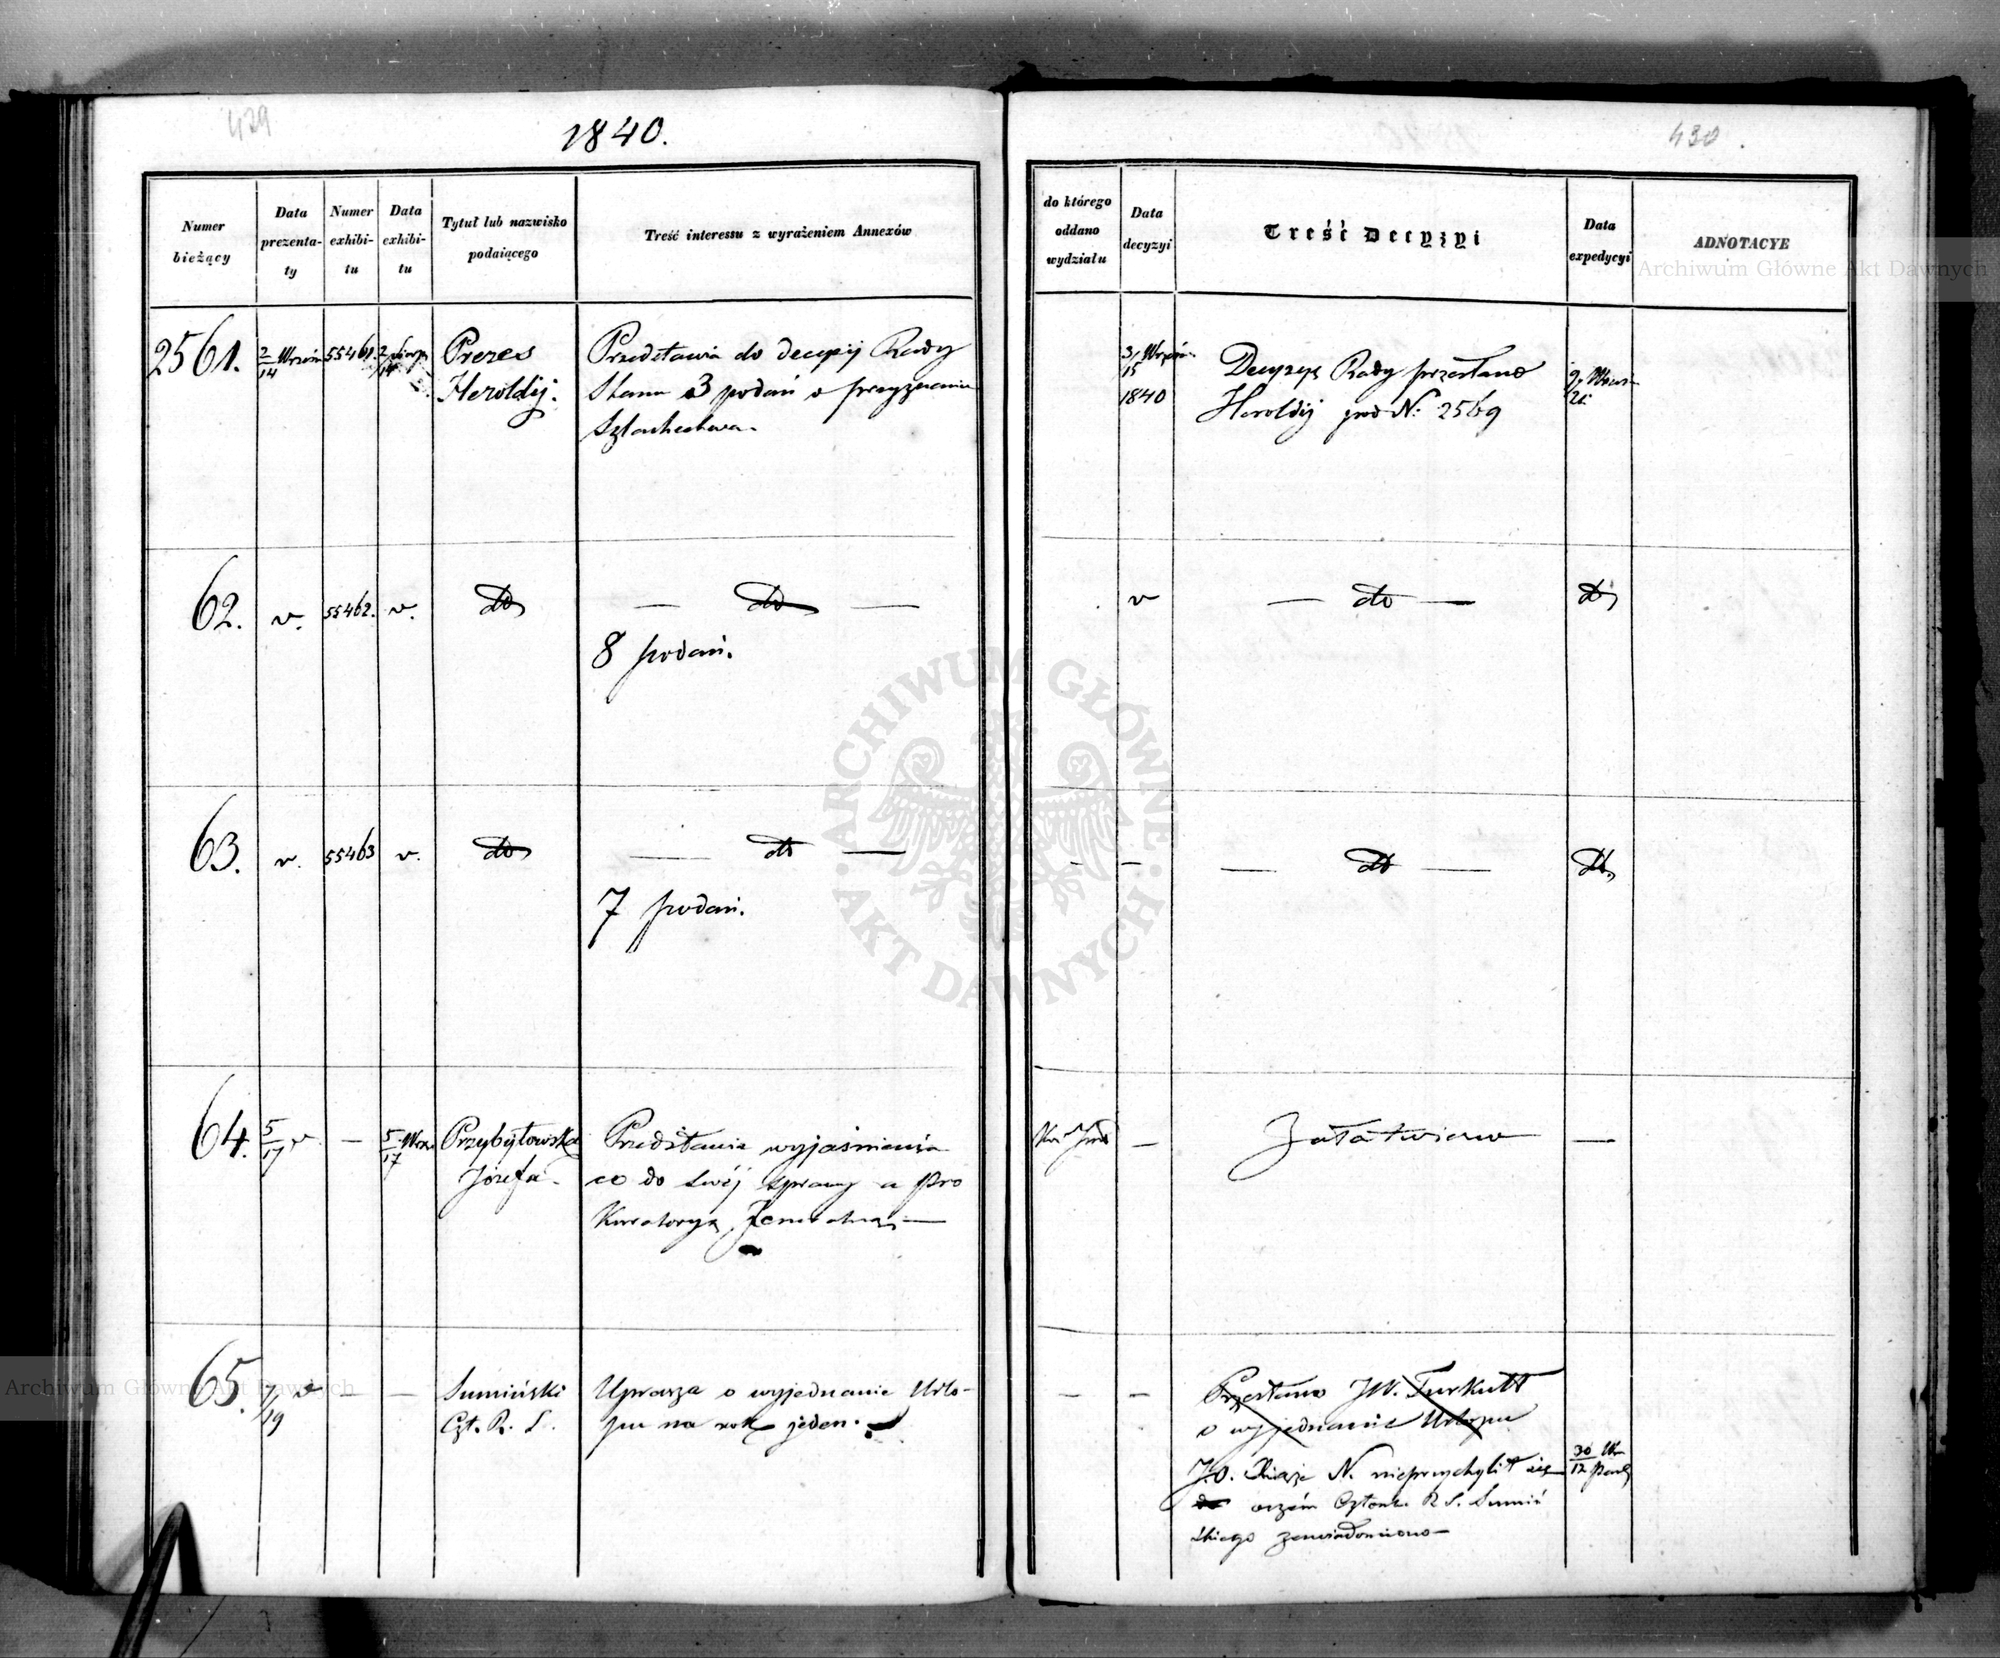 429
1840.
430.
Numer bieżący
Data prezentaty
Numer exhibitu
Data exhibitu
Tytuł lub nazwisko podaiącego
Treść interessu z wyrażeniem Annexów
do którego oddano wydziału
Data decyzyi
Treść Decyzyi
Data expedycyi
ADNOTACYE
Archiwum Główne Akt Dawnych
2561.
2/14 Wrześn
55461.
2/14
Prezes
Heroldij.
Przedstawia do decyzij Rady
Stanu 3 podań o przyznanie
Szlachectwa.
3/15 Wrześn
1840
Decyzye Rady przesłano
Heroldij pod N: 2569
9/21
62.
v.
55462.
v.
do
— do —
8 podań.
v
— do —
do
63.
v.
55463
v.
do
— do —
7 podań.
–
–
— do —
do
64.
5/17 v
—
5/17 Wrz
Przybyłowska
Józefa.
Przedstawia wyjaśnienia
co do swéj sprawy a Pro
kuratoryą Jeneralną —
—
Załatwiono
—
65.
7/19 v
—
—
Sumiński
Czł. R. S.
Uprasza o wyjednanie Urlo-
pu na rok jeden.
–
–
Przesłano JW. Turkułł
o wyjednanie Urlopu
J.O. Xiąże N. nieprzychylił się
do oczém Członka R S. Sumiń
skiego zawiadomiono —
30/12
Archiwum Główne Akt Dawnych
ARCHIWUM GŁÓWNE · AKT DAWNYCH ·